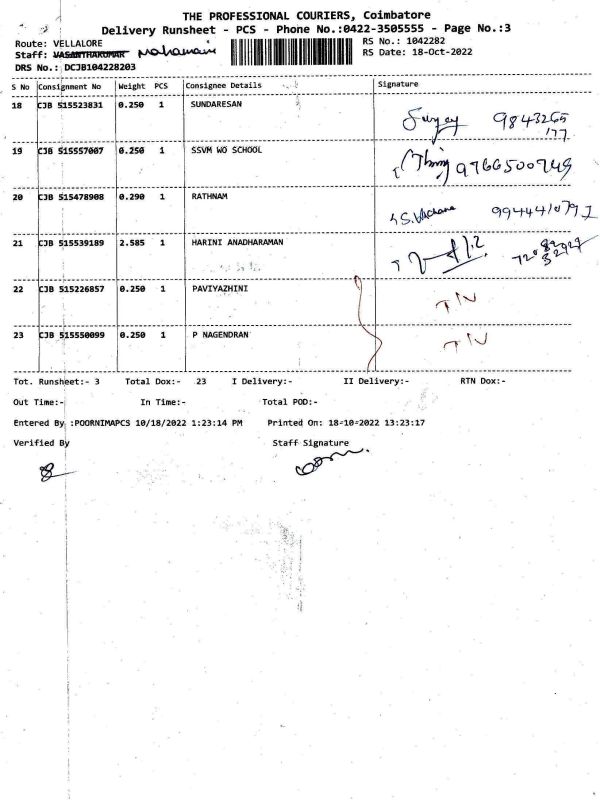 THE PROFESSIONAL COURIERS, Coimbatore
Delivery Runsheet - PCS - Phone No.:0422-3505555 - Page No.:3
Route: VELLALORE RS No.: 1042282
Staff: VASANTHAKUMAR RS Date: 18-Oct-2022
DRS No.: DCJB104228203
S No Consignment No Weight PCS Consignee Details Signature
18 CJB 515523831 0.250 1 SUNDARESAN 9843265
177
19 CJB 515557007 0.250 1 SSVM WO SCHOOL 9766500749
20 CJB 515478908 0.290 1 RATHNAM 9944410791
21 CJB 515539189 2.585 1 HARINI ANADHARAMAN
22 CJB 515226857 0.250 1 PAVIYAZHINI
23 CJB 515550099 0.250 1 P NAGENDRAN
Tot. Runsheet:- 3 Total Dox:- 23 I Delivery:- II Delivery:- RTN Dox:-
Out Time:- In Time:- Total POD:-
Entered By :POORNIMAPCS 10/18/2022 1:23:14 PM Printed On: 18-10-2022 13:23:17
Verified By Staff Signature